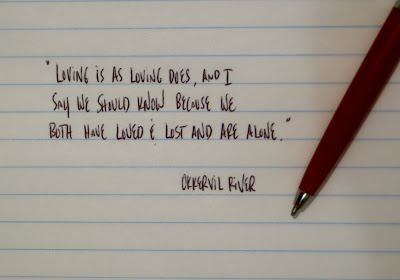 "LOVING IS AS LOVING DOES, AND I
SAY WE SHOULD KNOW BECAUSE WE
BOTH HAVE LOVED & LOST AND ARE ALONE."
OKKERVIL RIVER